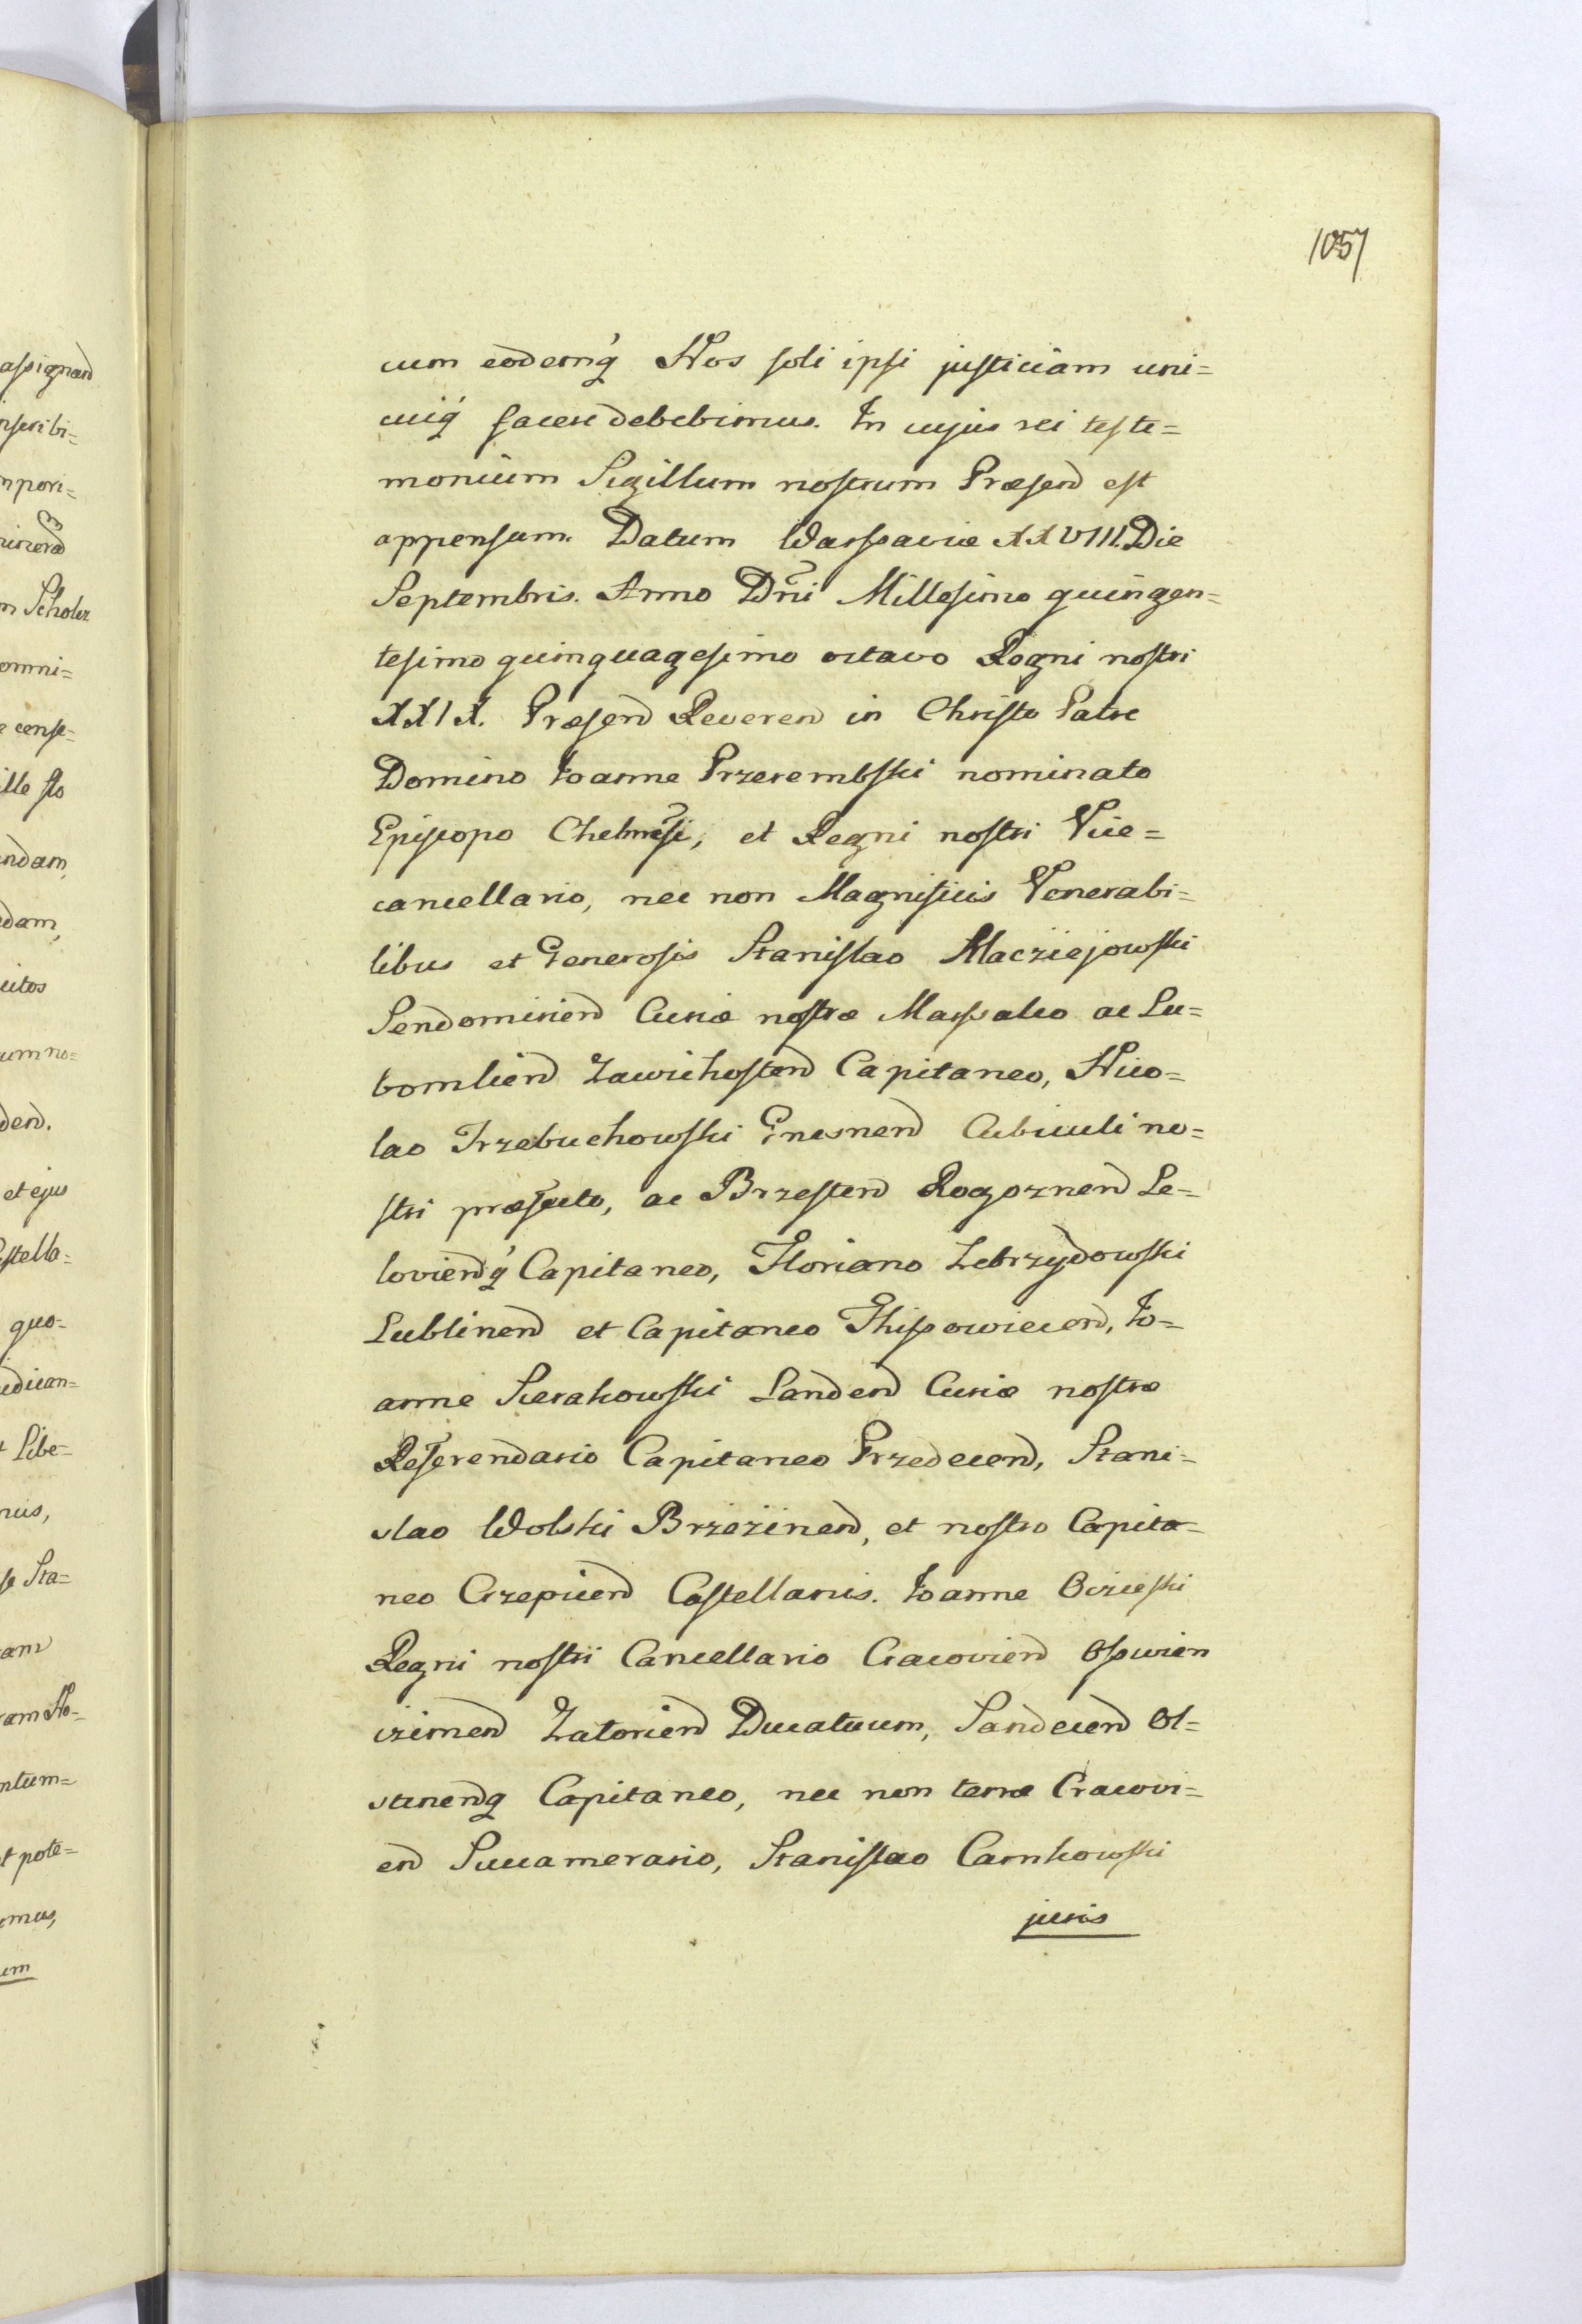 1057
cum eodemq́ Nos soli ipsi justiciam uni=
cuiq́ facere debebimus. In cujus rei teste=
monium Sigillum nostrum Præsen̄ est
appensum. Datum Warssaviæ XXVIII. Die
Septembris. Anno Dn̄i Millesimo quingen=
tesimo quinquagesimo octavo Regni nostri
XXIX. Præsen̄ Reveren̄ in Christo Patre
Domino Joanne Przerembski nominato
Episcopo Chelmēsi, et Regni nostri Vice=
cancellario, nec non Magnificis Venerabi=
libus et Generosis Stanislao Macziejowski
Sendomirien̄ Curiæ nostræ Marssalco ac Lu=
bomlien̄ Zawichosten̄ Capitaneo, Nico=
lao Trzebuchowski Gnesnen̄ Cubiculi no=
stri præfecto, ac Brzesten̄ Rogoznen̄ Le=
lovien̄q́ Capitaneo, Floriano Zebrzydowski
Lublinen̄ et Capitaneo Thissowiecen̄, Jo=
anne Sierakowski Landen̄ Curiæ nostræ
Referendario Capitaneo Przedecen̄, Stani=
slao Wolski Brzezinen̄, et nostro Capita=
neo Crzepicen̄ Castellanis. Joanne Oczieski
Regni nostri Cancellario Cracovien̄ Osswien
czimen̄ Zatorien̄ Ducatuum, Sandecen̄ Ol=
stinen̄q Capitaneo, nec non terræ Cracovi=
en̄ Succamerario, Stanislao Carnkowski
juris
assignan̄
nscribi=
mpori=
m Scholæ
omni=
e cense=
ille sto
endam,
edam,
uitos
um no=
den̄.
et ejus
astella=
quo=
udican=
t Libe=
mus,
se Sta=
ram
ram No=
ntum=
t pote=
emus,
um